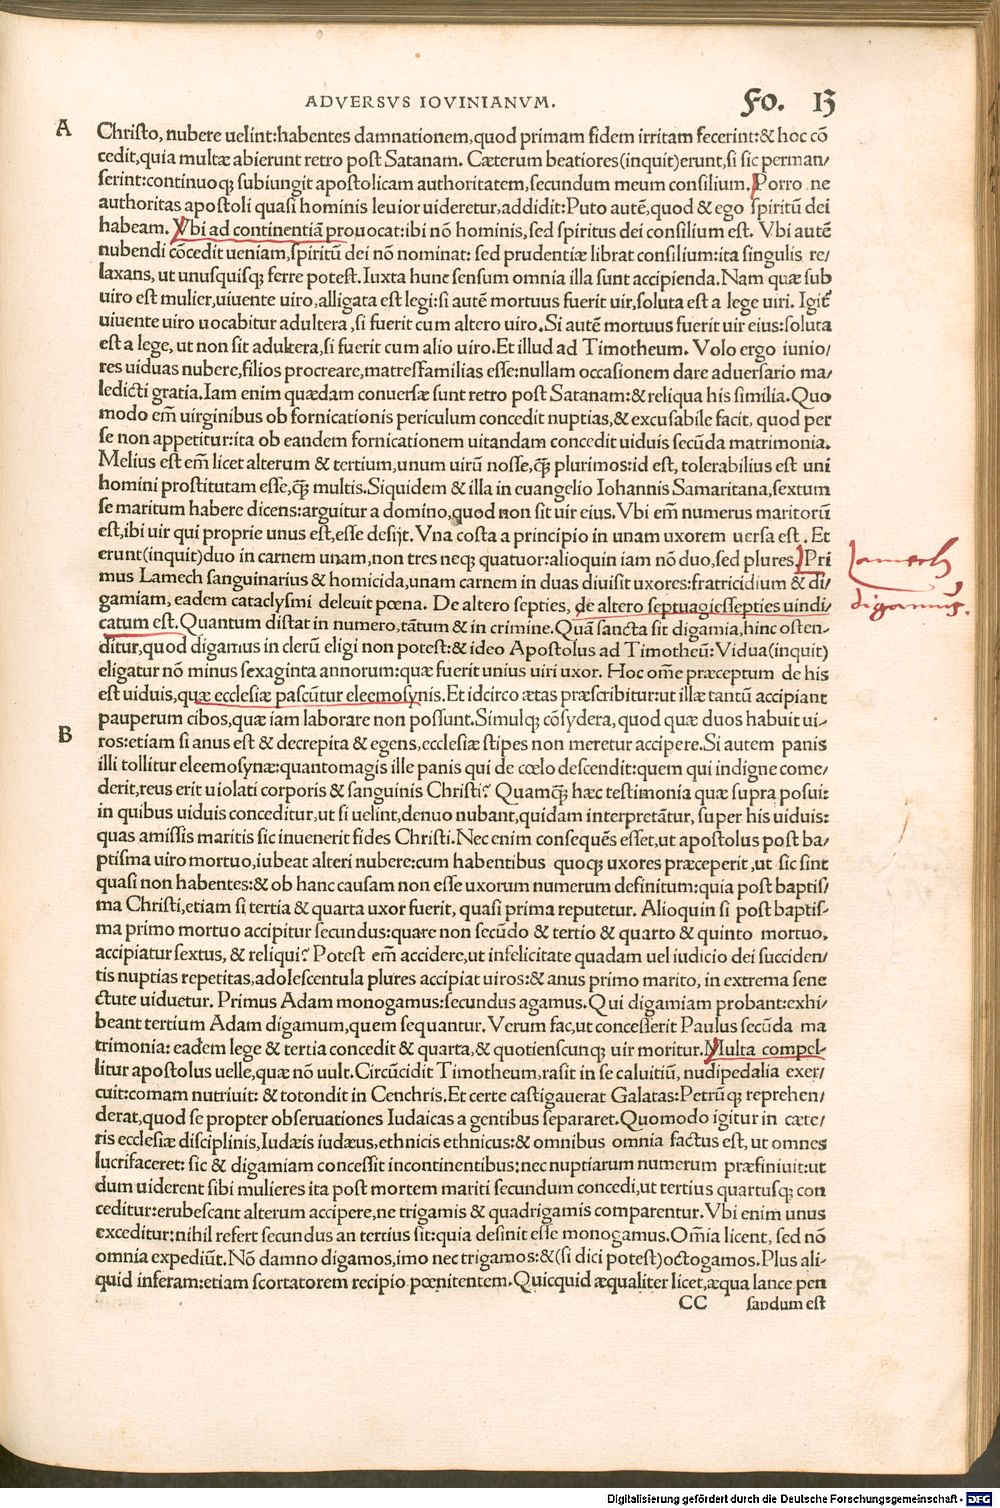 ADVERSVS IOVINIANVM.
Fo. 13
A
Christo, nubere uelint:habentes damnationem,quod primam fidem irritam fecerint:& hoc cõ
cedit,quia multæ abierunt retro post Satanam. Cæterum beatiores(inquit)erunt,si sic perman/
serint:continuoq; subiungit apostolicam authoritatem,secundum meum consilium. Porro ne
authoritas apostoli quasi hominis leuior uideretur,addidit:Puto autẽ,quod & ego spiritũ dei
habeam. Vbi ad continentiã prouocat:ibi nõ hominis,sed spiritus dei consilium est. Vbi autẽ
nubendi cõcedit ueniam,spiritũ dei nõ nominat: sed prudentiæ librat consilium:ita singulis re/
laxans, ut unusquisq; ferre potest. Iuxta hunc sensum omnia illa sunt accipienda. Nam quæ sub
uiro est mulier,uiuente uiro,alligata est legi:si autẽ mortuus fuerit uir,soluta est a lege uiri. Igit̃
uiuente uiro uocabitur adultera ,si fuerit cum altero uiro.Si autẽ mortuus fuerit uir eius:soluta
est a lege, ut non sit adultera,si fuerit cum alio uiro.Et illud ad Timotheum. Volo ergo iunio/
res uiduas nubere,filios procreare,matresfamilias esse:nullam occasionem dare aduersario ma/
ledicti gratia.Iam enim quædam conuersæ sunt retro post Satanam:& reliqua his similia.Quo
modo em̃ uirginibus ob fornicationis periculum concedit nuptias,& excusabile facit, quod per
se non appetitur:ita ob eandem fornicationem uitandam concedit uiduis secũda matrimonia.
Melius est em̃ licet alterum & tertium,unum uirũ nosse,q̃ꝫ plurimos:id est, tolerabilius est uni
homini prostitutam esse,q̃ꝫ multis.Siquidem & illa in euangelio Iohannis Samaritana,sextum
se maritum habere dicens:arguitur a domino,quod non sit uir eius.Vbi em̃ numerus maritorũ
est,ibi uir qui proprie unus est,esse desijt. Vna costa a principio in unam uxorem uersa est. Et
erunt(inquit)duo in carnem unam,non tres neq; quatuor:alioquin iam nõ duo,sed plures. Pri
mus Lamech sanguinarius & homicida,unam carnem in duas diuisit uxores:fratricidium & di/
gamiam, eadem cataclysmi deleuit pœna. De altero septies, de altero septuagiessepties uindi/
catum est.Quantum distat in numero,tãtum & in crimine.Quã sancta sit digamia,hinc osten-
ditur,quod digamus in clerũ eligi non potest:& ideo Apostolus ad Timotheũ:Vidua(inquit)
eligatur nõ minus sexaginta annorum:quæ fuerit unius uiri uxor. Hoc om̃e præceptum de his
est uiduis,quæ ecclesiæ pascũtur eleemosynis.Et idcirco ætas præscribitur:ut illæ tantũ accipiant
pauperum cibos,quæ iam laborare non possunt.Simulq; cõsydera, quod quæ duos habuit ui-
B
ros:etiam si anus est & decrepita & egens,ecclesiæ stipes non meretur accipere.Si autem panis
illi tollitur eleemosynæ:quantomagis ille panis qui de cœlo descendit:quem qui indigne come/
derit,reus erit uiolati corporis & sanguinis Christi? Quamq̃ꝫ hæc testimonia quæ supra posui:
in quibus uiduis conceditur,ut si uelint,denuo nubant,quidam interpretãtur, super his uiduis:
quas amissis maritis sic inuenerit fides Christi. Nec enim consequẽs esset,ut apostolus post ba/
ptisma uiro mortuo,iubeat alteri nubere:cum habentibus quoq; uxores præceperit ,ut sic sint
quasi non habentes:& ob hanc causam non esse uxorum numerum definitum:quia post baptis/
ma Christi,etiam si tertia & quarta uxor fuerit, quasi prima reputetur. Alioquin si post baptis-
ma primo mortuo accipitur secundus:quare non secũdo & tertio & quarto & quinto mortuo,
accipiatur sextus, & reliqui? Potest em̃ accidere,ut infelicitate quadam uel iudicio dei succiden/
tis nuptias repetitas,adolescentula plures accipiat uiros:& anus primo marito, in extrema sene
ctute uiduetur. Primus Adam monogamus:secundus agamus.Qui digamiam probant:exhi/
beant tertium Adam digamum,quem sequantur. Verum fac,ut concesserit Paulus secũda ma
trimonia: eadem lege & tertia concedit & quarta,& quotienscunq; uir moritur. Multa compel-
litur apostolus uelle,quæ nõ uult.Circũcidit Timotheum,rasit in se caluitiũ, nudipedalia exer/
cuit:comam nutriuit: & totondit in Cenchris.Et certe castigauerat Galatas:Petrũq; reprehen/
derat,quod se propter obseruationes Iudaicas a gentibus separaret.Quomodo igitur in cæte/
ris ecclesiæ disciplinis,Iudæis iudæus,ethnicis ethnicus:& omnibus omnia factus est, ut omnes
lucrifaceret: sic & digamiam concessit incontinentibus:nec nuptiarum numerum præfiniuit:ut
dum uiderent sibi mulieres ita post mortem mariti secundum concedi,ut tertius quartusq; con
ceditur:erubescant alterum accipere,ne trigamis & quadrigamis comparentur.Vbi enim unus
exceditur:nihil refert secundus an tertius sit:quia desinit esse monogamus.Om̃ia licent, sed nõ
omnia expediũt.Nõ damno digamos,imo nec trigamos:&(si dici potest)octogamos.Plus ali-
quid inferam:etiam scortatorem recipio pœnitentem.Quicquid æqualiter licet,æqua lance pen
CC sandum est
Lamech
digamus.
Digitalisierung gefördert durch die Deutsche Forschungsgemeinschaft - DFG